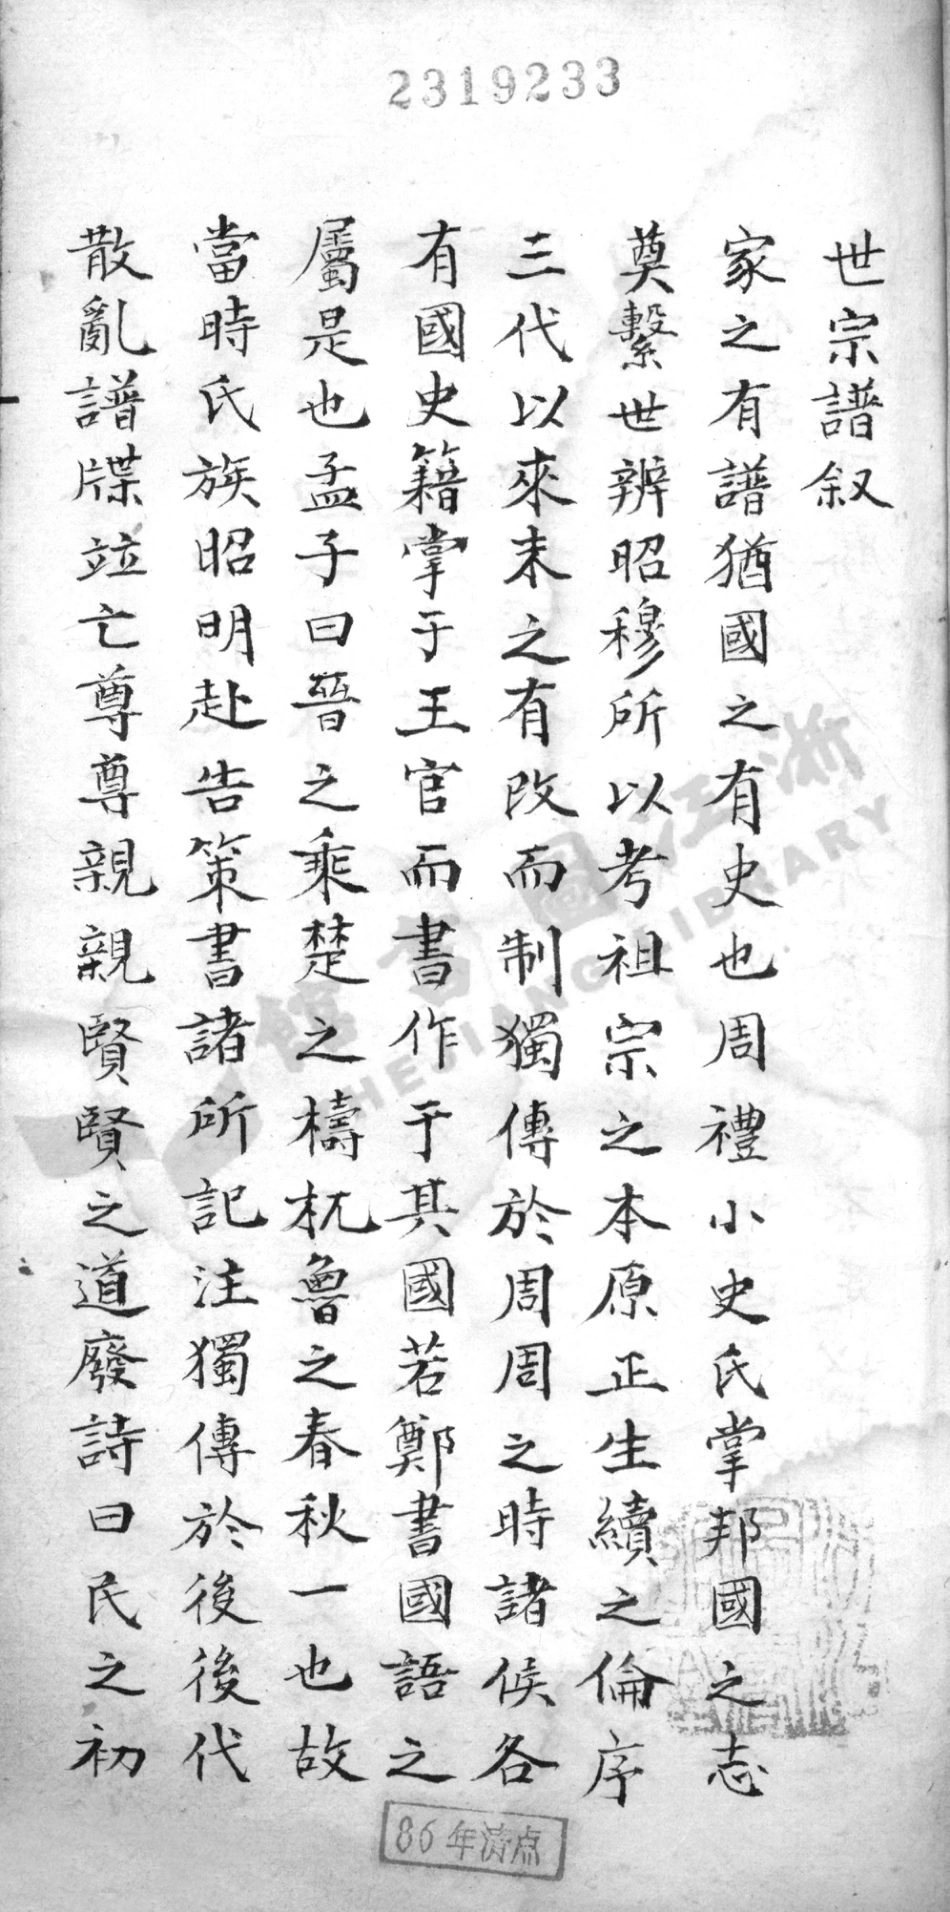 2319233
世宗譜叙
家之有譜猶國之有史也周禮小史氏掌邦國之志
奠繫世辨昭穆所以考祖宗之本原正生續之倫序
三代以來未之有改而制獨傳於周周之時諸侯各
有國史籍掌于王官而書作于其國若鄭書國語之
屬是也孟子曰晉之乘楚之檮杌魯之春秋一也故
當時氏族昭明赴告策書諸所記注獨傳於後後代
散亂譜牒竝亡尊尊親親賢賢之道廢詩曰民之初
浙江圖書館
ZHEJIANG LIBRARY
86年清点